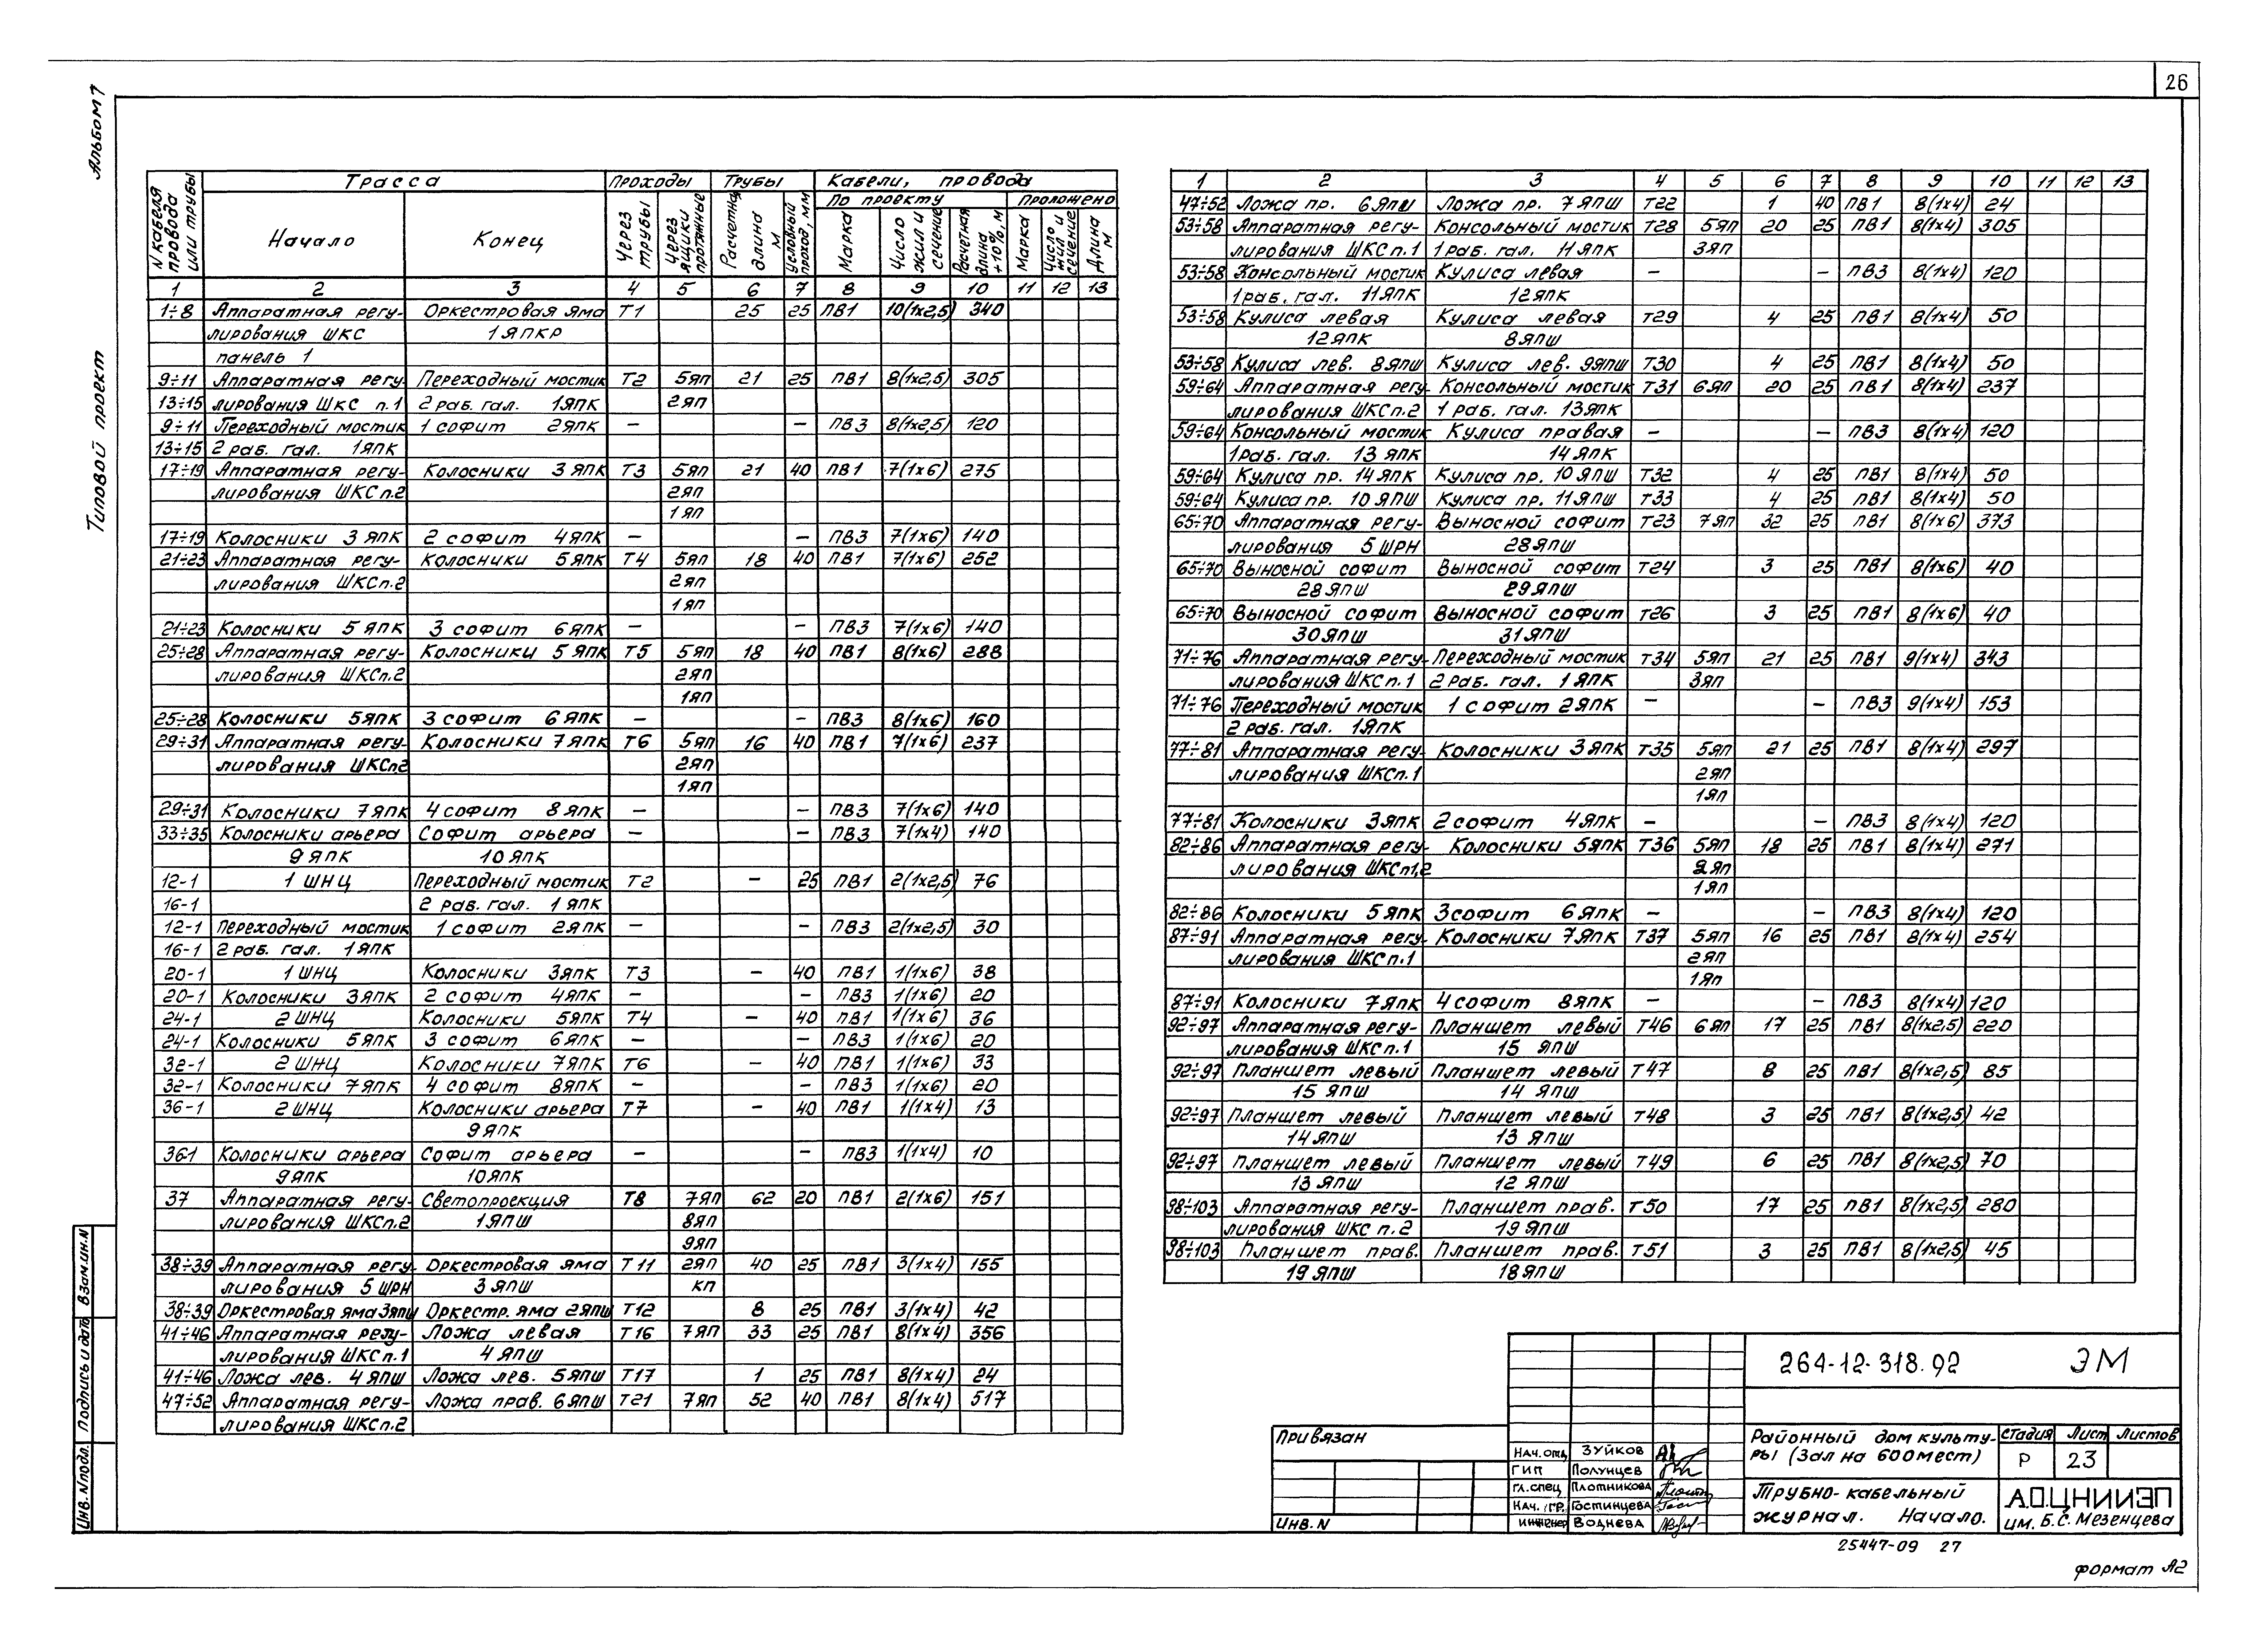 26
Альбом 7
Типовой проект
N кабеля провода или трубы | Трасса | Проходы | Трубы | Кабели, провода
По проекту | Проложено
Начало | Конец | Через трубы | Через ящики протяжные | Расчетная длина м | Условный проход, мм | Марка | Число жил и сечение | Расчетная длина +10%, м | Марка | Число жил и сечение | Длина м
1 2 3 4 5 6 7 8 9 10 11 12 13
1÷8 Аппаратная регу- Оркестровая яма Т1 25 25 ПВ1 10(1х2,5) 340
лирования ШКС 1ЯПКР
панель 1
9÷11 Аппаратная регу- Переходный мостик Т2 5ЯП 21 25 ПВ1 8(1х2,5) 305
13÷15 лирования ШКС п.1 2 раб. гал. 1ЯПК 2ЯП
9÷11 Переходный мостик 1 софит 2ЯПК – – ПВ3 8(1х2,5) 120
13÷15 2 раб. гал. 1ЯПК
17÷19 Аппаратная регу- Колосники 3ЯПК Т3 5ЯП 21 40 ПВ1 7(1х6) 275
лирования ШКСп.2 2ЯП
1ЯП
17÷19 Колосники 3ЯПК 2 софит 4ЯПК – – ПВ3 7(1х6) 140
21÷23 Аппаратная регу- Колосники 5ЯПК Т4 5ЯП 18 40 ПВ1 7(1х6) 252
лирования ШКСп.2 2ЯП
1ЯП
21÷23 Колосники 5ЯПК 3 софит 6ЯПК – – ПВ3 7(1х6) 140
25÷28 Аппаратная регу- Колосники 5ЯПК Т5 5ЯП 18 40 ПВ1 8(1х6) 288
лирования ШКСп.2 2ЯП
1ЯП
25÷28 Колосники 5ЯПК 3 софит 6ЯПК – – ПВ3 8(1х6) 160
29÷31 Аппаратная регу- Колосники 7ЯПК Т6 5ЯП 16 40 ПВ1 7(1х6) 237
лирования ШКСп2 2ЯП
1ЯП
29÷31 Колосники 7ЯПК 4 софит 8ЯПК – – ПВ3 7(1х6) 140
33÷35 Колосники арьера Софит арьера – – ПВ3 7(1х4) 140
9ЯПК 10ЯПК
12-1 1 ШНЦ Переходный мостик Т2 – 25 ПВ1 2(1х2,5) 76
16-1 2 раб. гал. 1ЯПК
12-1 Переходный мостик 1 софит 2ЯПК – – ПВ3 2(1х2,5) 30
16-1 2 раб. гал. 1ЯПК
20-1 1 ШНЦ Колосники 3ЯПК Т3 – 40 ПВ1 1(1х6) 38
20-1 Колосники 3ЯПК 2 софит 4ЯПК – – ПВ3 1(1х6) 20
24-1 2 ШНЦ Колосники 5ЯПК Т4 – 40 ПВ1 1(1х6) 36
24-1 Колосники 5ЯПК 3 софит 6ЯПК – – ПВ3 1(1х6) 20
32-1 2 ШНЦ Колосники 7ЯПК Т6 – 40 ПВ1 1(1х6) 33
32-1 Колосники 7ЯПК 4 софит 8ЯПК – – ПВ3 1(1х6) 20
36-1 2 ШНЦ Колосники арьера Т7 – 40 ПВ1 1(1х4) 13
9ЯПК
36-1 Колосники арьера Софит арьера – – ПВ3 1(1х4) 10
9ЯПК 10ЯПК
37 Аппаратная регу- Светопроекция Т8 7ЯП 62 20 ПВ1 2(1х6) 151
лирования ШКСп.2 1ЯПШ 8ЯП
9ЯП
38÷39 Аппаратная регу- Оркестровая яма Т11 2ЯП 40 25 ПВ1 3(1х4) 155
лирования 5 ШРН 3ЯПШ КП
38÷39 Оркестровая яма 3ЯПШ Оркестр. яма 2ЯПШ Т12 8 25 ПВ1 3(1х4) 42
41÷46 Аппаратная регу- Ложа левая Т16 7ЯП 33 25 ПВ1 8(1х4) 356
лирования ШКСп.1 4ЯПШ
41÷46 Ложа лев. 4ЯПШ Ложа лев. 5ЯПШ Т17 1 25 ПВ1 8(1х4) 24
47÷52 Аппаратная регу- Ложа прав. 6ЯПШ Т21 7ЯП 52 40 ПВ1 8(1х4) 517
лирования ШКСп.2
1 2 3 4 5 6 7 8 9 10 11 12 13
47÷52 Ложа пр. 6ЯПШ Ложа пр. 7ЯПШ Т22 1 40 ПВ1 8(1х4) 24
53÷58 Аппаратная регу- Консольный мостик Т28 5ЯП 20 25 ПВ1 8(1х4) 305
лирования ШКСп.1 1раб. гал. 11ЯПК 3ЯП
53÷58 Консольный мостик Кулиса левая – – ПВ3 8(1х4) 120
1раб. гал. 11ЯПК 12ЯПК
53÷58 Кулиса левая Кулиса левая Т29 4 25 ПВ1 8(1х4) 50
12ЯПК 8ЯПШ
53÷58 Кулиса лев. 8ЯПШ Кулиса лев. 9ЯПШ Т30 4 25 ПВ1 8(1х4) 50
59÷64 Аппаратная регу- Консольный мостик Т31 6ЯП 20 25 ПВ1 8(1х4) 237
лирования ШКСп.2 1 раб. гал. 13ЯПК
59÷64 Консольный мостик Кулиса правая – – ПВ3 8(1х4) 120
1раб. гал. 13ЯПК 14ЯПК
59÷64 Кулиса пр. 14ЯПК Кулиса пр. 10ЯПШ Т32 4 25 ПВ1 8(1х4) 50
59÷64 Кулиса пр. 10ЯПШ Кулиса пр. 11ЯПШ Т33 4 25 ПВ1 8(1х4) 50
65÷70 Аппаратная регу- Выносной софит Т23 7ЯП 32 25 ПВ1 8(1х6) 373
лирования 5ШРН 28ЯПШ
65÷70 Выносной софит Выносной софит Т24 3 25 ПВ1 8(1х6) 40
28ЯПШ 29ЯПШ
65÷70 Выносной софит Выносной софит Т26 3 25 ПВ1 8(1х6) 40
30ЯПШ 31ЯПШ
71÷76 Аппаратная регу- Переходный мостик Т34 5ЯП 21 25 ПВ1 9(1х4) 343
лирования ШКСп.1 2 раб. гал. 1ЯПК 3ЯП
71÷76 Переходный мостик 1 софит 2ЯПК – – ПВ3 9(1х4) 153
2 раб. гал. 1ЯПК
77÷81 Аппаратная регу- Колосники 3ЯПК Т35 5ЯП 21 25 ПВ1 8(1х4) 297
лирования ШКСп.1 2ЯП
1ЯП
77÷81 Колосники 3ЯПК 2 софит 4ЯПК – – ПВ3 8(1х4) 120
82÷86 Аппаратная регу- Колосники 5ЯПК Т36 5ЯП 18 25 ПВ1 8(1х4) 271
лирования ШКСп1,2 2ЯП
1ЯП
82÷86 Колосники 5ЯПК 3 софит 6ЯПК – – ПВ3 8(1х4) 120
87÷91 Аппаратная регу- Колосники 7ЯПК Т37 5ЯП 16 25 ПВ1 8(1х4) 254
лирования ШКСп.1 2ЯП
1ЯП
87÷91 Колосники 7ЯПК 4 софит 8ЯПК – – ПВ3 8(1х4) 120
92÷97 Аппаратная регу- Планшет левый Т46 6ЯП 17 25 ПВ1 8(1х2,5) 220
лирования ШКСп.1 15 ЯПШ
92÷97 Планшет левый Планшет левый Т47 8 25 ПВ1 8(1х2,5) 85
15 ЯПШ 14 ЯПШ
92÷97 Планшет левый Планшет левый Т48 3 25 ПВ1 8(1х2,5) 42
14ЯПШ 13 ЯПШ
92÷97 Планшет левый Планшет левый Т49 6 25 ПВ1 8(1х2,5) 70
13ЯПШ 12 ЯПШ
98÷103 Аппаратная регу- Планшет прав. Т50 17 25 ПВ1 8(1х2,5) 280
лирования ШКС п.2 19ЯПШ
98÷103 Планшет прав. Планшет прав. Т51 3 25 ПВ1 8(1х2,5) 45
19ЯПШ 18ЯПШ
Взам.ин.N
Подпись и дата
Инв.Nподл.
Привязан
Инв.N
Нач.отд. Зуйков
ГИП Полунцев
Гл.спец Плотникова
Нач.гр. Гостинцева
Инженер Воднева
264-12-318.92 ЭМ
Районный дом культу-
ры (Зал на 600 мест)
Стадия Лист Листов
Р 23
Трубно-кабельный
журнал. Начало.
А.О.ЦНИИЭП
им. Б.С. Мезенцева
25447-09 27
формат А2